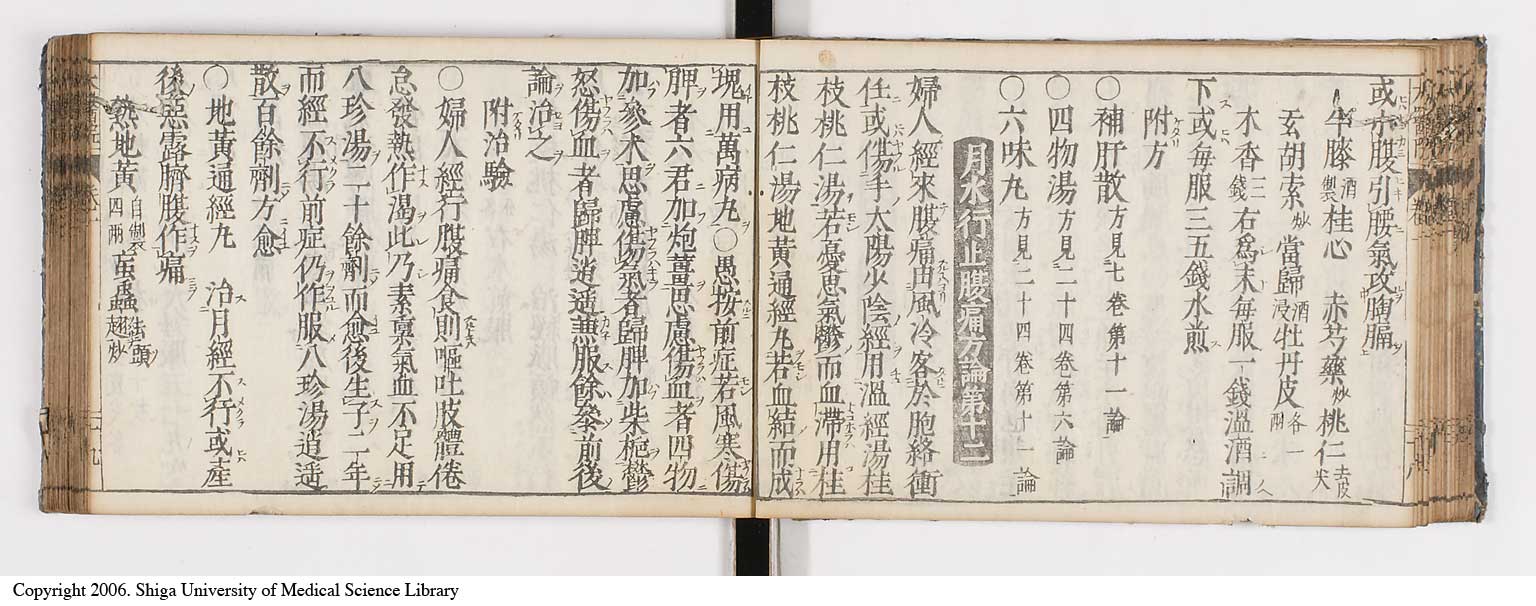 或小腹引腰氣攻胸膈
牛膝酒製桂心　赤芍藥炒桃仁去皮尖
玄胡索炒當歸酒浸牡丹皮各一兩
木香三錢右爲末每服一錢溫酒調
下或每服三五錢水煎
附方
〇補肝散方見七卷第十一論
〇四物湯方見二十四卷第六論
〇六味丸方見二十四卷第十一論
月水行止腹痛方論第十二
婦人經來腹痛由風冷客於胞絡衝
任或傷手太陽少陰經用溫經湯桂
枝桃仁湯若憂思氣鬱而血滯用桂
枝桃仁湯地黃通經丸若血結而成
塊用萬病丸〇愚按前症若風寒傷
脾者六君加炮薑思慮傷血者四物
加參朮思慮傷氣者歸脾加柴梔鬱
怒傷血者歸脾逍遥兼服餘參前後
論治之
附治驗
〇婦人經行腹痛食則嘔吐肢體倦
怠發熱作渴此乃素稟氣血不足用
八珍湯二十餘劑而愈後生子二年
而經不行前症仍作服八珍湯逍遥
散百餘劑方愈
〇地黃通經丸　治月經不行或產
後惡露臍腹作痛
熟地黃四兩自製虻蟲去頭翅炒
Copyright 2006. Shiga University of Medical Science Library